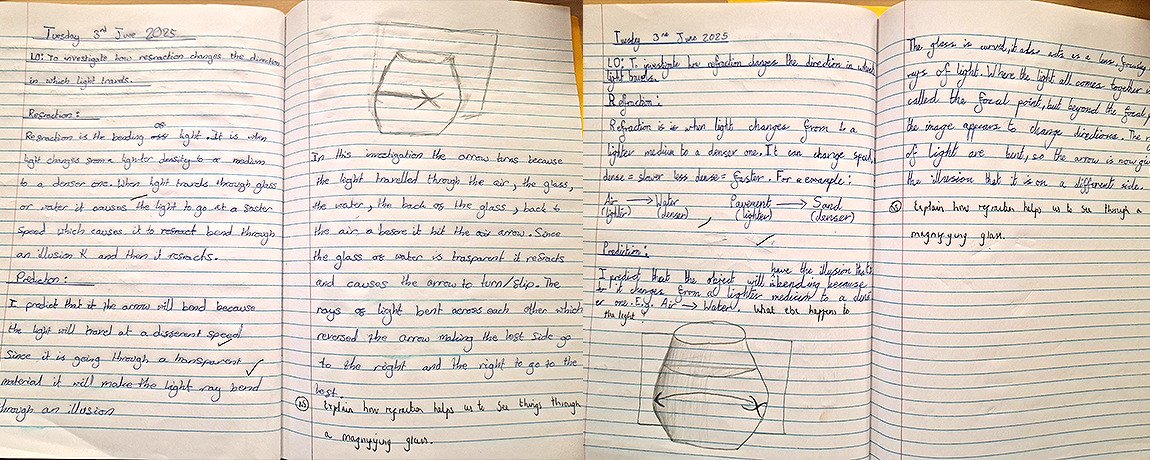 Tuesday 3rd June 2025
LO: To investigate how refraction changes the direction
in which light travels.
Refraction:
Refraction is the bending of light. It is when
light changes from a lighter density to a medium
to a denser one. When light travels through glass
or water it causes the light to go at a faster
speed which causes it to refract bend through
an illusion and then it refracts.
Prediction:
I predict that it the arrow will bend because
the light will travel at a different speed
Since it is going through a transparent
material it will make the light ray bend
through an illusion
In this investigation the arrow turns because
the light travelled through the air, the glass,
the water, the back of the glass, back to
the air a before it hit the air arrow. Since
the glass of water is trasparent it refracts
and causes the arrow to turn/slip. The
rays of light bent across each other which
reversed the arrow making the left side go
to the right and the right to go to the
left.
NS Explain how refraction helps us to see things through
a magnifying glass.
Tuesday 3rd June 2025
LO: To investigate how refraction changes the direction in which
light travels.
Refraction:
Refraction is is when light changes from to a
lighter medium to a denser one. It can change speed,
dense = slower less dense = faster. For a example:
Air → Water Pavement → Sand
(lighter) (denser) (lighter) (denser)
Prediction:
have the illusion that
I predict that the object will bending because
it changes from a lighter medium to a dens
er one. E.g. Air → Water. What else happens to
the light?
The glass is curved, it also acts as a lens, focusing
rays of light. Where the light all comes together
called the focal point, but beyond the focal
the image appears to change directions. The
of light are bent, so the arrow is now
the illusion that it is on a different side.
NS Explain how refraction helps us to see through a
magnifying glass.